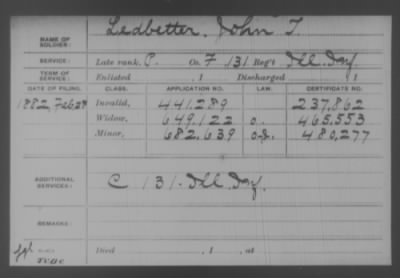 NAME OF SOLDIER: Ledbetter, John T.
SERVICE: Late rank, P. Co. F, 131 Reg't Ill. Inf.
TERM OF SERVICE: Enlisted , 1 Discharged , 1
DATE OF FILING. CLASS. APPLICATION NO. LAW. CERTIFICATE NO.
1882, Feb 28 Invalid, 441.289 237,862
Widow, 649.122 465,553
Minor, 682,639 480,277
ADDITIONAL SERVICES: C 131 Ill. Inf.
REMARKS:
Died , 1 , at